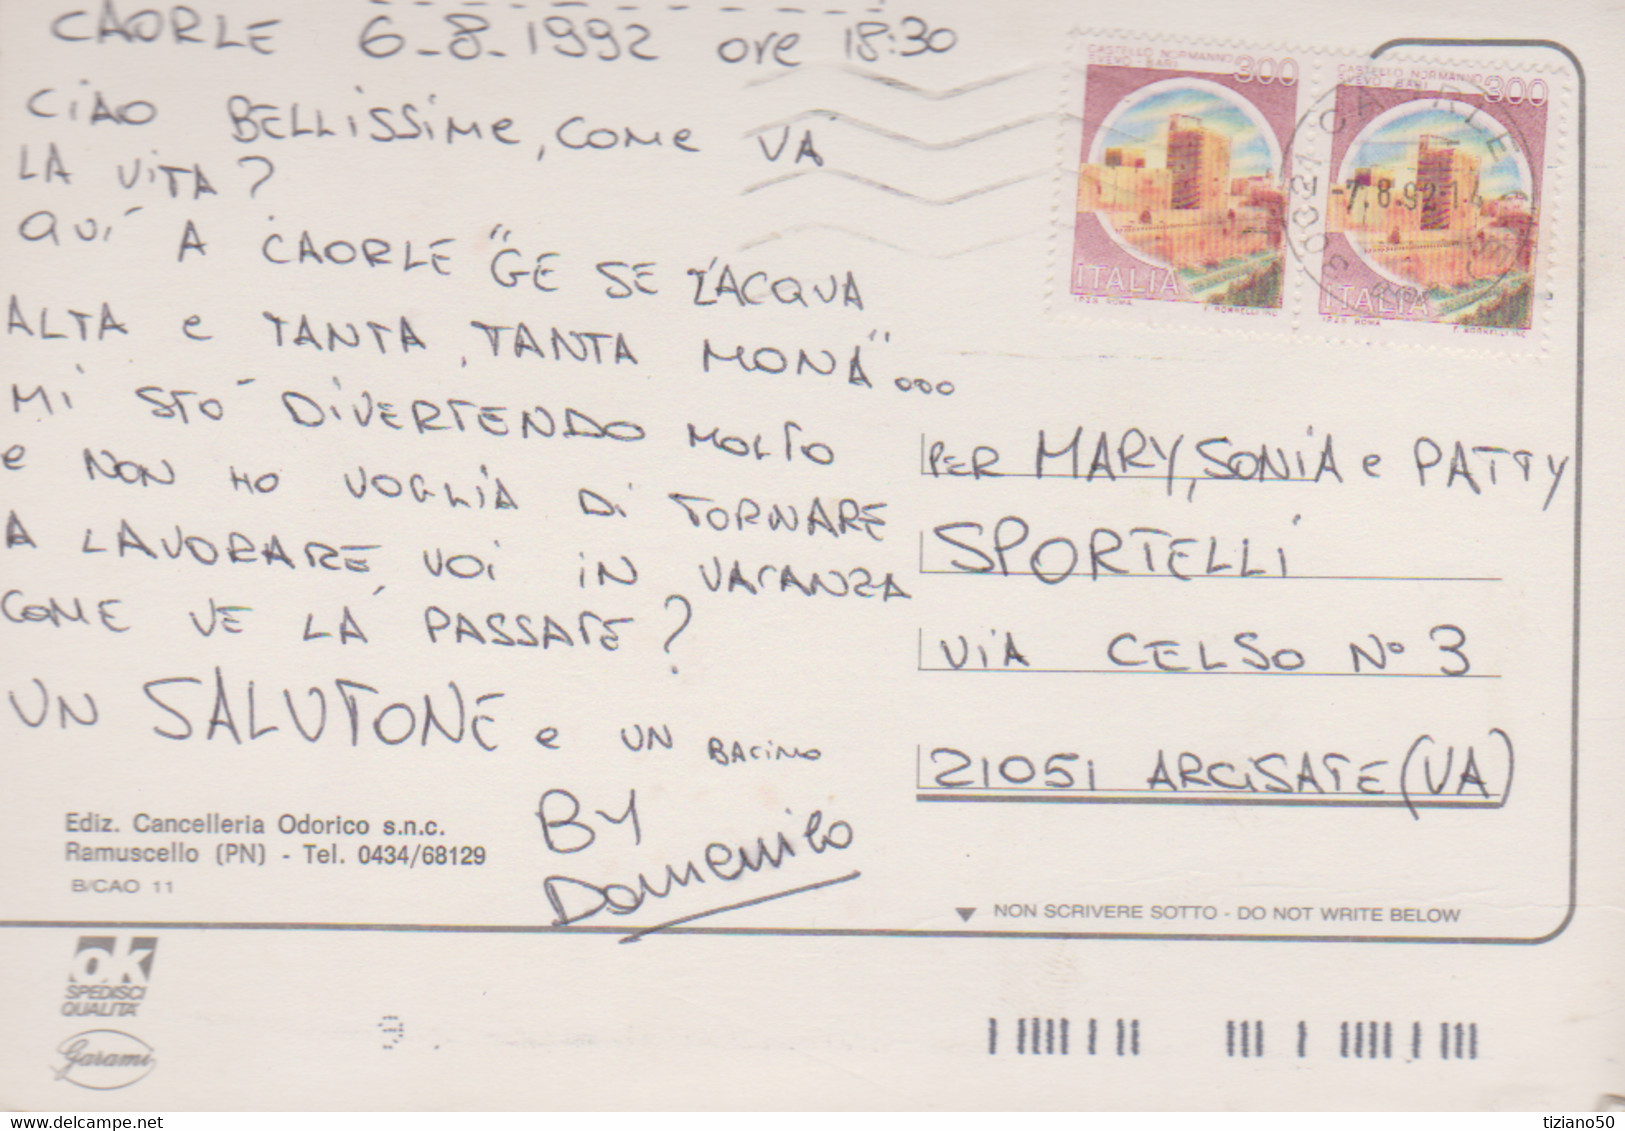 CAORLE 6-8-1992 ore 18:30
CIAO BELLISSIME, COME VA
LA VITA?
QUI' A CAORLE "GE SE L'ACQUA
ALTA e TANTA, TANTA MONA"...
MI STO' DIVERTENDO MOLTO
e NON HO VOGLIA DI TORNARE
A LAVORARE, VOI IN VACANZA
COME VE LA' PASSATE?
UN SALUTONE e UN BACINO
BY
Domenico
Ediz. Cancelleria Odorico s.n.c.
Ramuscello (PN) - Tel. 0434/68129
B/CAO 11
CASTELLO NORMANNO
SVEVO - BARI
300
ITALIA
I.P.Z.S. ROMA
CASTELLO NORMANNO
SVEVO - BARI
300
ITALIA
I.P.Z.S. ROMA
30021 CAORLE
-7.8.92-14
PER MARY, SONIA e PATTY
SPORTELLI
VIA CELSO N° 3
21051 ARCISATE (VA)
NON SCRIVERE SOTTO - DO NOT WRITE BELOW
OK
SPEDISCI
QUALITÀ
Garami
tiziano50